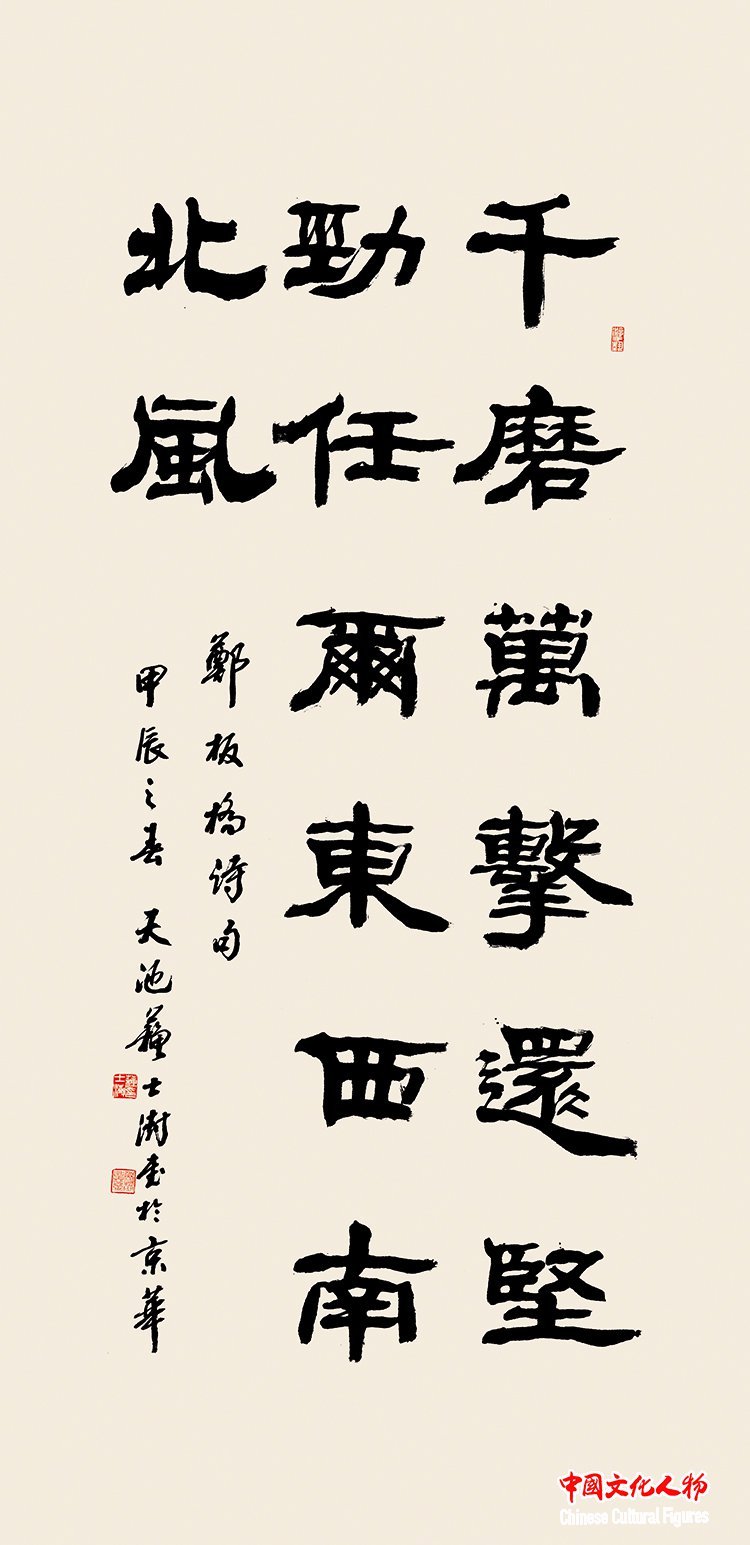 千磨萬擊還堅
勁任爾東西南
北風
鄭板橋诗句
甲辰之春 天池蘇士澍书於京華
中國文化人物
Chinese Cultural Figures